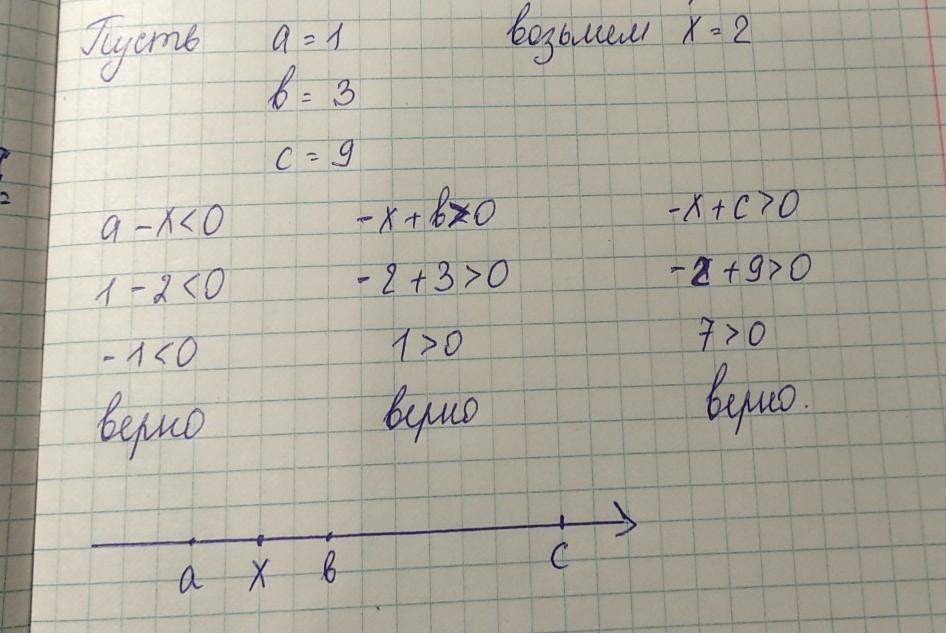 Пусть a = 1 возьмем x = 2
b = 3
c = 9
a - x < 0 - x + b > 0 - x + c > 0
1 - 2 < 0 - 2 + 3 > 0 - 2 + 9 > 0
- 1 < 0 1 > 0 7 > 0
верно верно верно.
a x b c